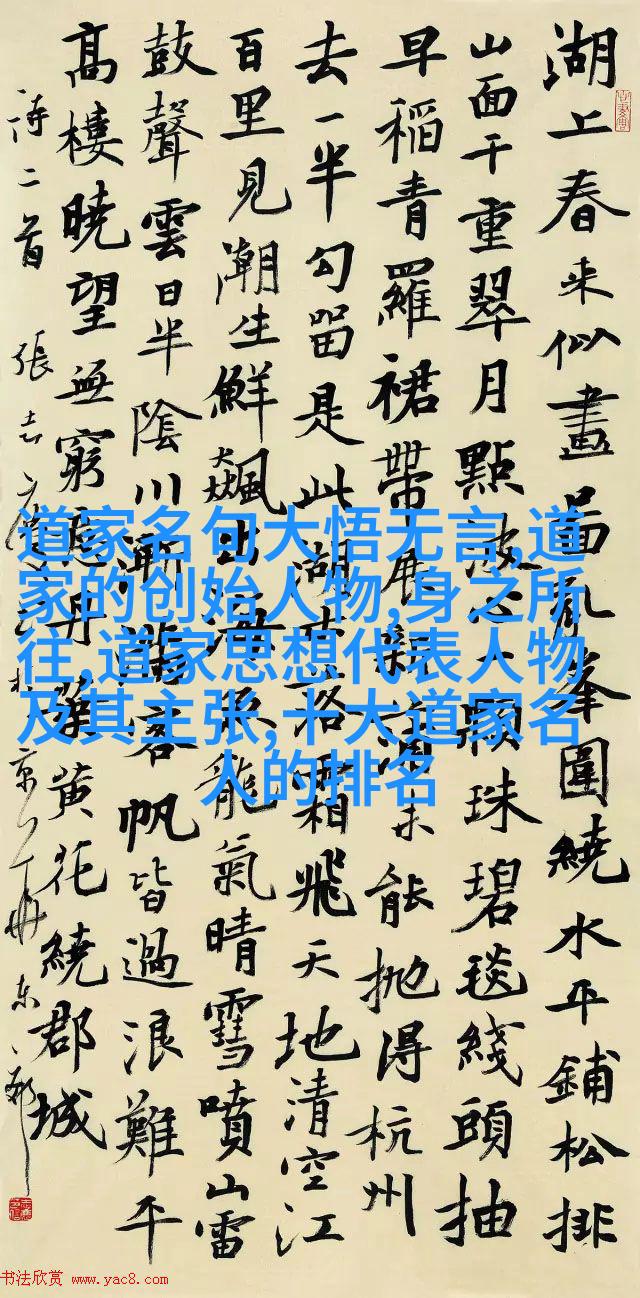 湖上春来似畫圖亂峯圍繞水平鋪松排
山面千重翠月點波心一顆珠碧毯綫頭抽
早稻青羅裙帶展新蒲未能抛得杭州
去一半勾留是此湖木落霜飛天地清空江
百里見潮生鮮飇出海魚龍氣晴雪噴山雷
鼓聲雲日半陰川漸滿客帆皆過浪難平
高樓曉望無窮意丹葉黄花繞郡城
詩二首 張志
道家名句大悟无言,道
家的创始人物,身之所
往,道家思想代表人物
及其主张,十大道家名
人的排名
书法欣赏 www.yac8.com